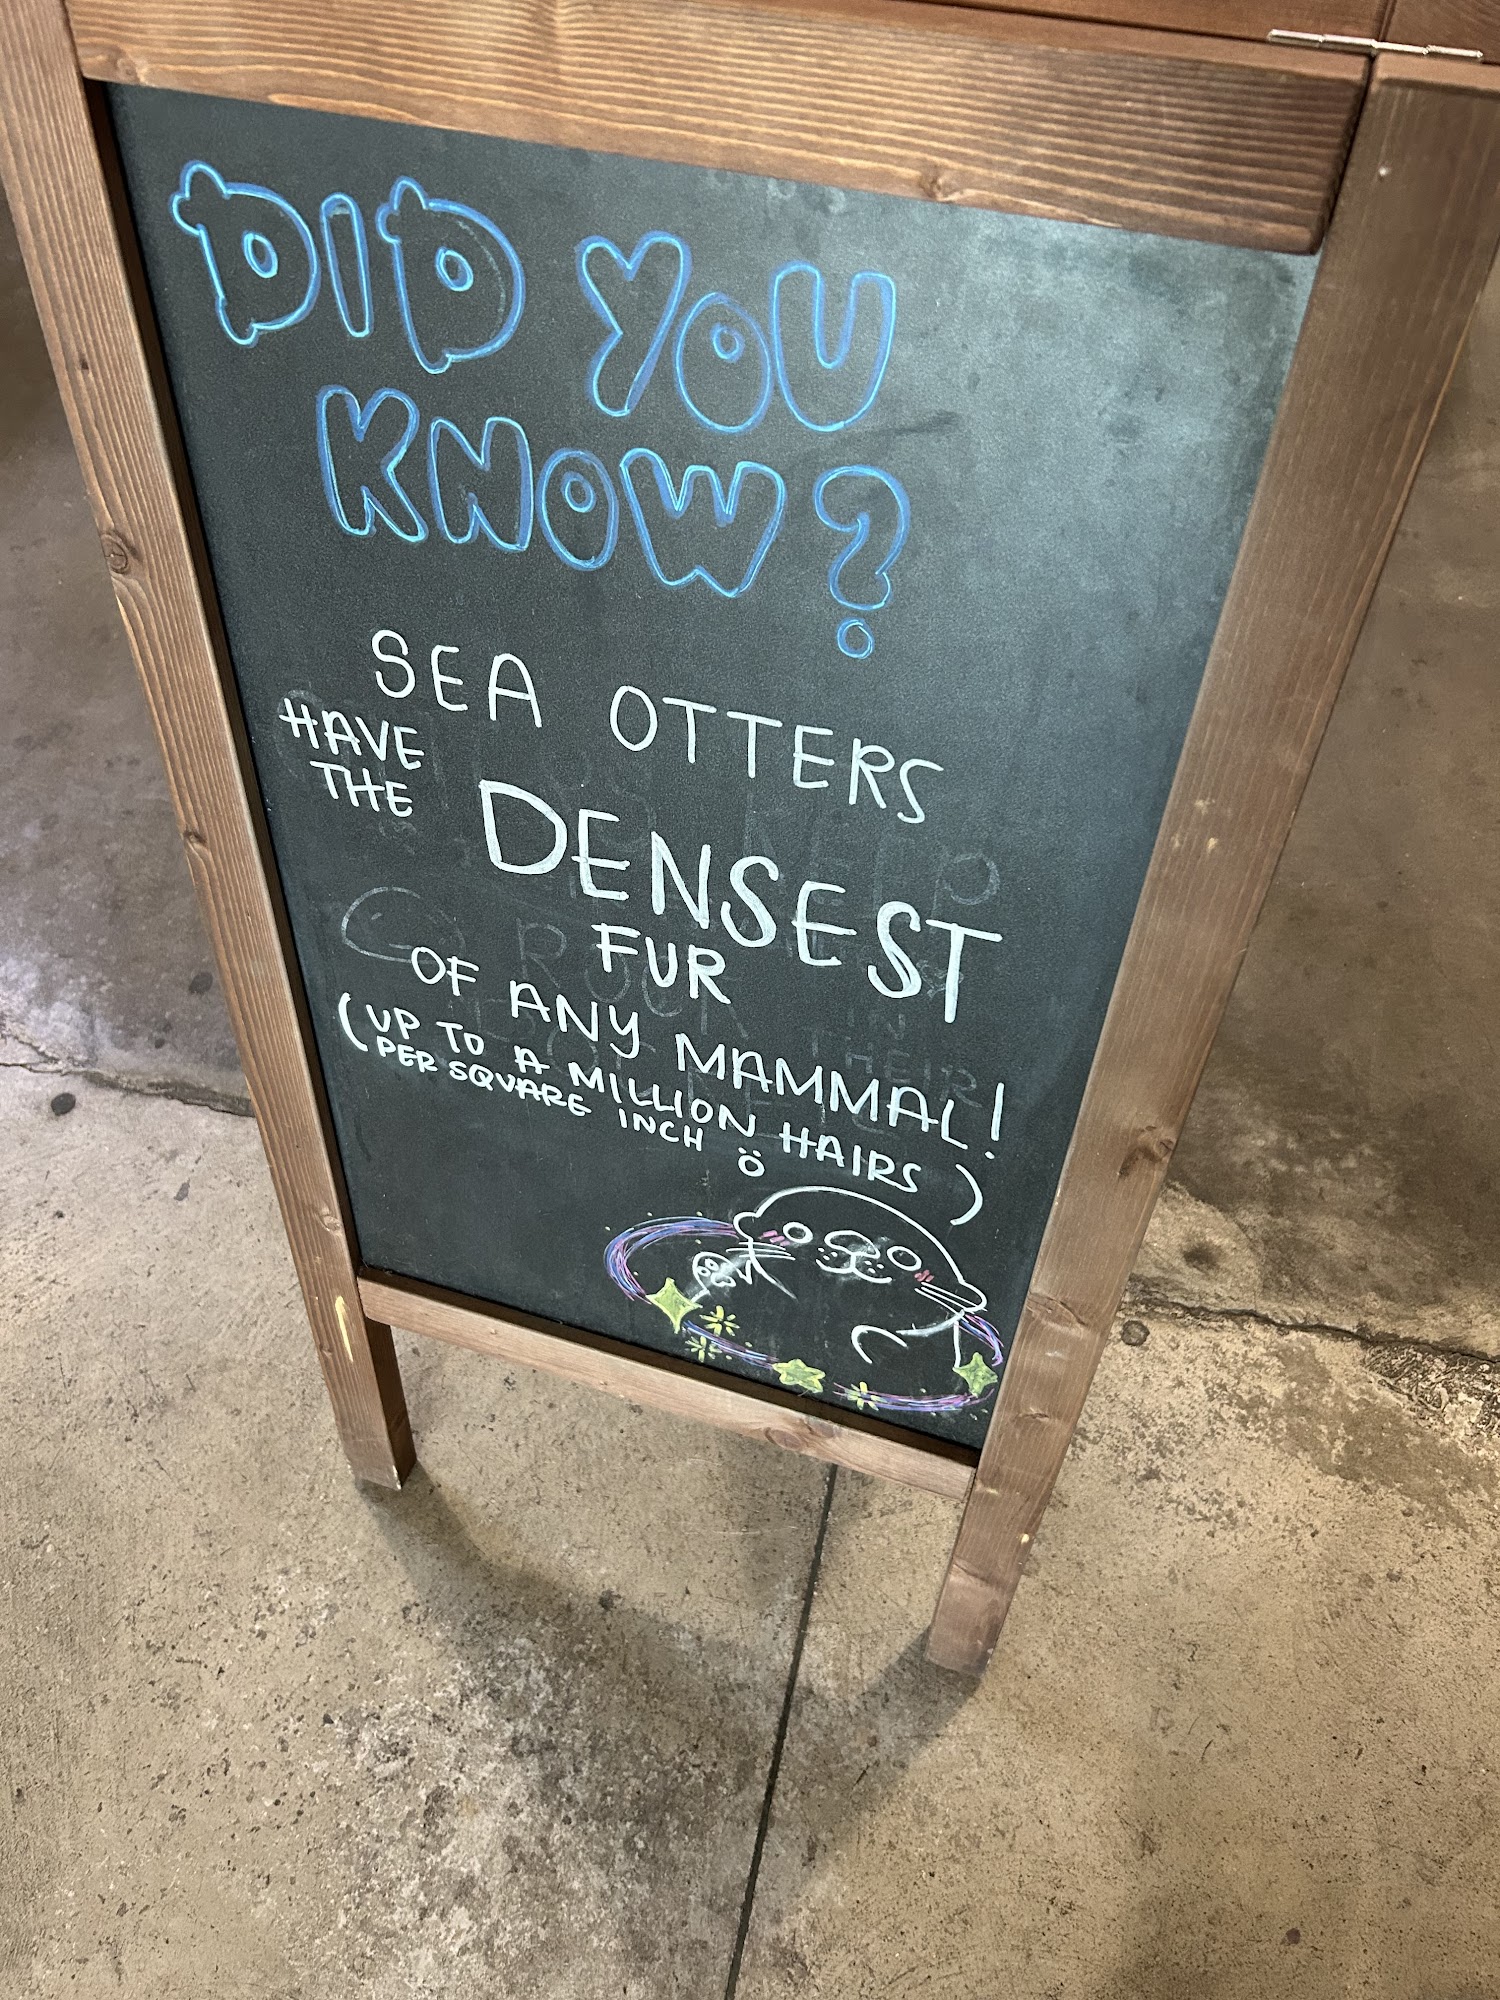 DID YOU
KNOW?
SEA OTTERS
HAVE
THE
DENSEST
FUR
OF ANY MAMMAL!
(UP TO A MILLION HAIRS)
PER SQUARE INCH Ö